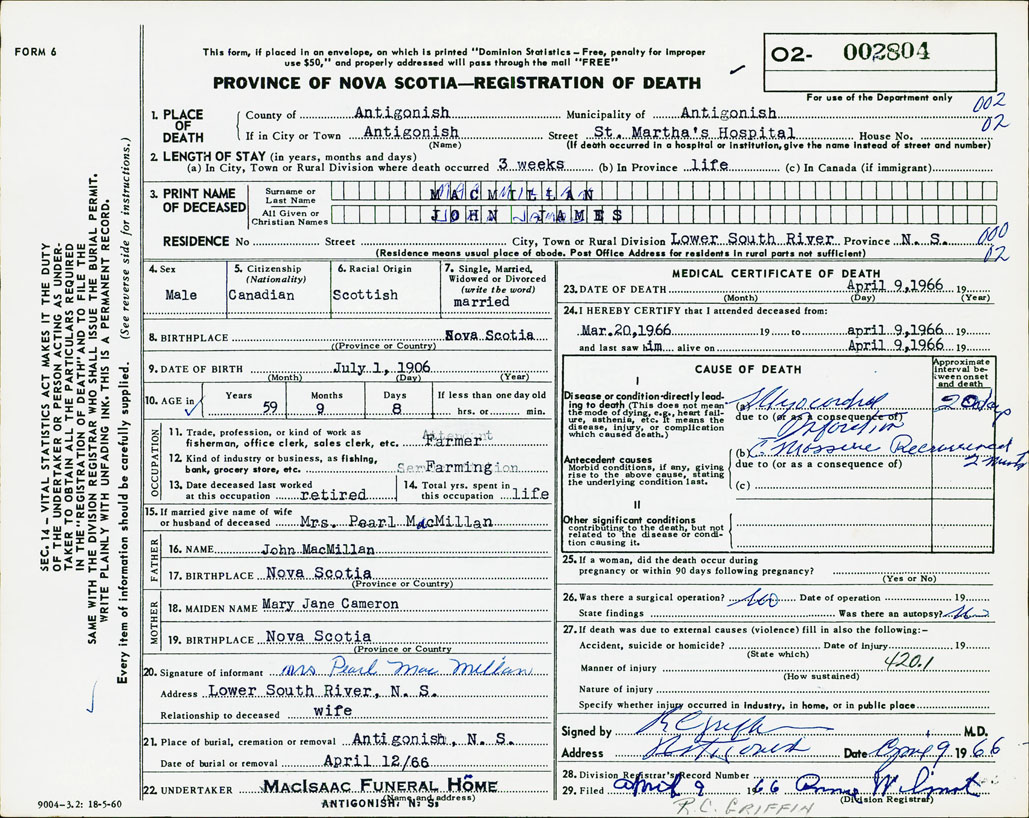 FORM 6
This form, if placed in an envelope, on which is printed "Dominion Statistics – Free, penalty for improper
use $50," and properly addressed will pass through the mail "FREE"
PROVINCE OF NOVA SCOTIA—REGISTRATION OF DEATH
O2- 002804
For use of the Department only
002
02
1. PLACE OF DEATH
County of Antigonish Municipality of Antigonish
If in City or Town Antigonish Street St. Martha's Hospital House No.
(Name) (If death occurred in a hospital or institution, give the name instead of street and number)
2. LENGTH OF STAY (in years, months and days)
(a) In City, Town or Rural Division where death occurred 3 weeks (b) In Province life (c) In Canada (if immigrant)
3. PRINT NAME OF DECEASED
Surname or Last Name MACMILLAN
All Given or Christian Names JOHN JAMES
RESIDENCE No Street City, Town or Rural Division Lower South River Province N. S.
000
02
(Residence means usual place of abode. Post Office Address for residents in rural parts not sufficient)
4. Sex
Male
5. Citizenship
(Nationality)
Canadian
6. Racial Origin
Scottish
7. Single, Married, Widowed or Divorced
(write the word)
married
8. BIRTHPLACE Nova Scotia
((Province or Country)
9. DATE OF BIRTH July 1, 1906
(Month) (Day) (Year)
10. AGE in
Years 59
Months 9
Days 8
If less than one day old
hrs. or min.
OCCUPATION
11. Trade, profession, or kind of work as
fisherman, office clerk, sales clerk, etc. Farmer
12. Kind of industry or business, as fishing,
bank, grocery store, etc. Farming
13. Date deceased last worked
at this occupation retired
14. Total yrs. spent in
this occupation life
15. If married give name of wife
or husband of deceased Mrs. Pearl MacMillan
FATHER
16. NAME John MacMillan
17. BIRTHPLACE Nova Scotia
(Province or Country)
MOTHER
18. MAIDEN NAME Mary Jane Cameron
19. BIRTHPLACE Nova Scotia
(Province or Country)
20. Signature of informant Mrs Pearl Mac Millan
Address Lower South River, N. S.
Relationship to deceased wife
21. Place of burial, cremation or removal Antigonish, N. S.
Date of burial or removal April 12/66
22. UNDERTAKER MacIsaac Funeral Home
(Name and address)
ANTIGONISH, N. S.
9004–3.2: 18-5-60
MEDICAL CERTIFICATE OF DEATH
23. DATE OF DEATH April 9,1966 19
(Month) (Day) (Year)
24. I HEREBY CERTIFY that I attended deceased from:
Mar.20,1966 19 to april 9,1966 19
and last saw him alive on April 9,1966 19
CAUSE OF DEATH
Approximate interval between onset and death
I
Disease or condition directly leading to death (This does not mean the mode of dying, e.g., heart failure, asthenia, etc. It means the disease, injury, or complication which caused death.)
(a) Myocardial 20 days
due to (or as a consequence of)
Infarction
Antecedent causes
Morbid conditions, if any, giving rise to the above cause, stating the underlying condition last.
(b) Massive
due to (or as a consequence of)
(c)
II
Other significant conditions
contributing to the death, but not related to the disease or condition causing it.
25. If a woman, did the death occur during
pregnancy or within 90 days following pregnancy?
(Yes or No)
26. Was there a surgical operation? No Date of operation 19
State findings Was there an autopsy? No
27. If death was due to external causes (violence) fill in also the following:–
Accident, suicide or homicide? Date of injury 19
(State which)
420.1
Manner of injury
(How sustained)
Nature of injury
Specify whether injury occurred in Industry, in home, or in public place
Signed by R C Griffin M.D.
Address Antigonish Date April 9 1966
28. Division Registrar's Record Number
29. Filed April 9 1966
(Division Registrar)
R.C. GRIFFIN
SEC. 14 – VITAL STATISTICS ACT MAKES IT THE DUTY
OF THE UNDERTAKER OR PERSON ACTING AS UNDER-
TAKER TO OBTAIN ALL THE PARTICULARS REQUIRED
IN THE "REGISTRATION OF DEATH" AND TO FILE THE
SAME WITH THE DIVISION REGISTRAR WHO SHALL ISSUE THE BURIAL PERMIT.
WRITE PLAINLY WITH UNFADING INK. THIS IS A PERMANENT RECORD.
Every item of information should be carefully supplied. (See reverse side for instructions.)